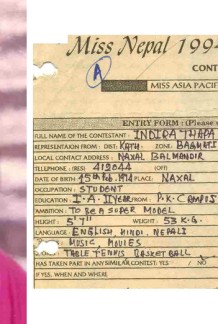 Miss Nepal 199
CONT
A
MISS ASIA PACIF
ENTRY FORM : (Please
FULL NAME OF THE CONTESTANT : INDIRA THAPA
REPRESENTAION FROM : DIST. KATH. ZONE. BAGMATI
LOCAL CONTACT ADDRESS : NAXAL BALMANDIR
TELLPHONE . (RES) 412044 (OFF)
DATE OF BIRTH Feb. PLACE: NAXAL
OCCUPATION : STUDENT
EDUCATION : I.A. II YEAR FROM: P.K. CAMPUS
AMBITION : TO BE A SUPER MODEL
HEIGHT : 5'7" WEIGHT : 53 K.G.
LANGUAGE : ENGLISH HINDI, NEPALI
MUSIC, MOVIES
TABLE TENNIS BASKET BALL
HAS TAKEN PART IN ANY SIMILAR CONTEST: YES / NO
IF YES, WHEN AND WHERE